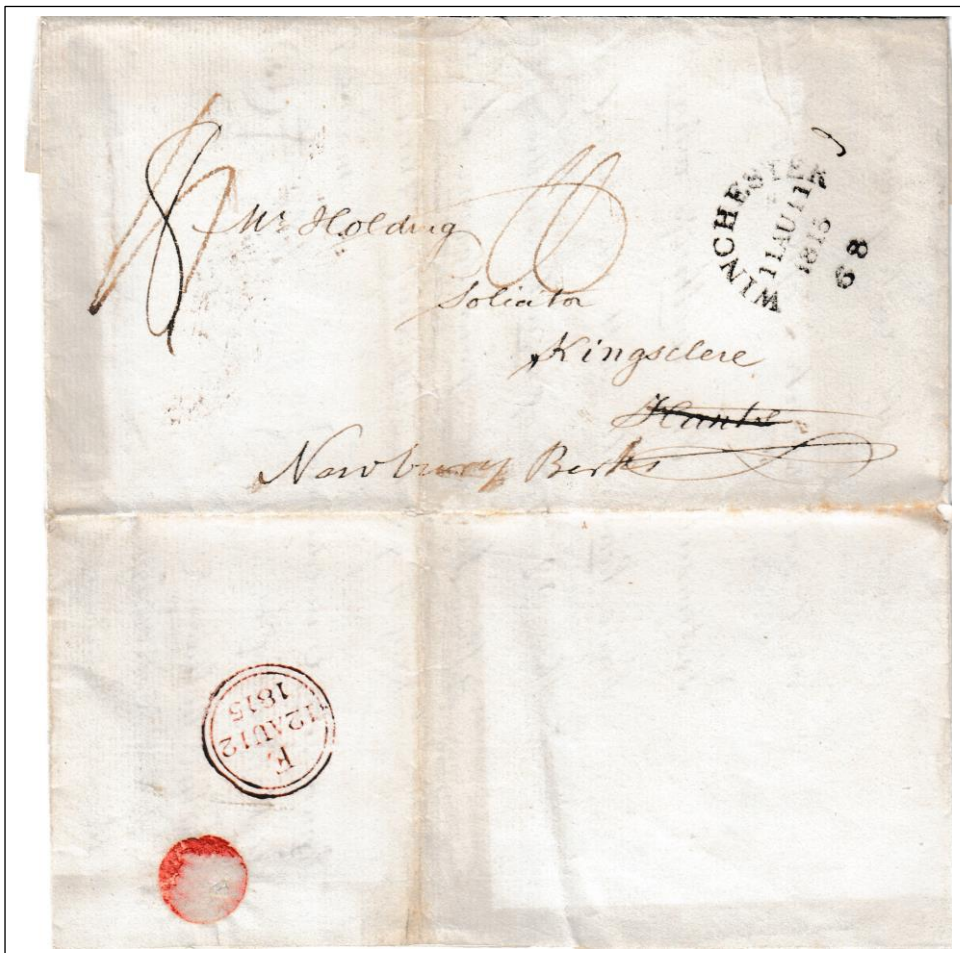 8
Mr Holding
Solicitor
Kingsclere
Hants
Newbury Berks
WINCHESTER
11AU11
1815
68
F
12AU12
1815